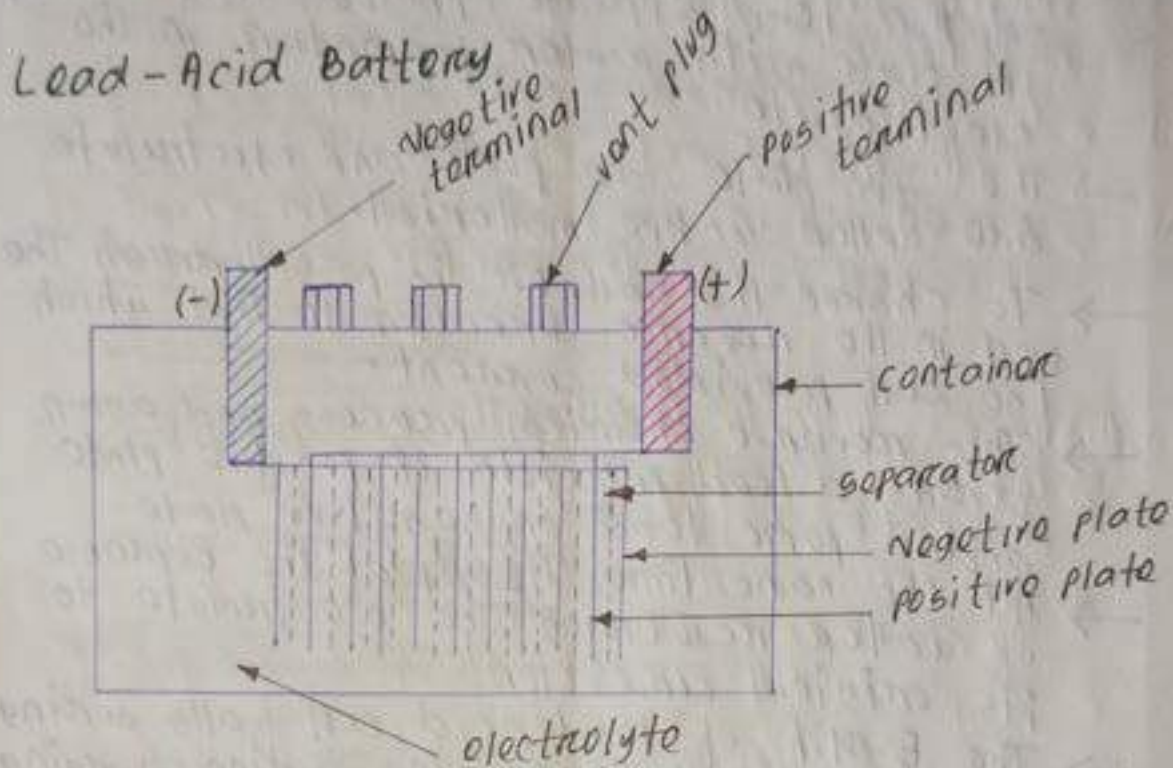 Lead-Acid Battery
Negotive
terminal
vent plug
positive
terminal
(-)
(+)
container
separator
Negetive plate
positive plate
electrolyte